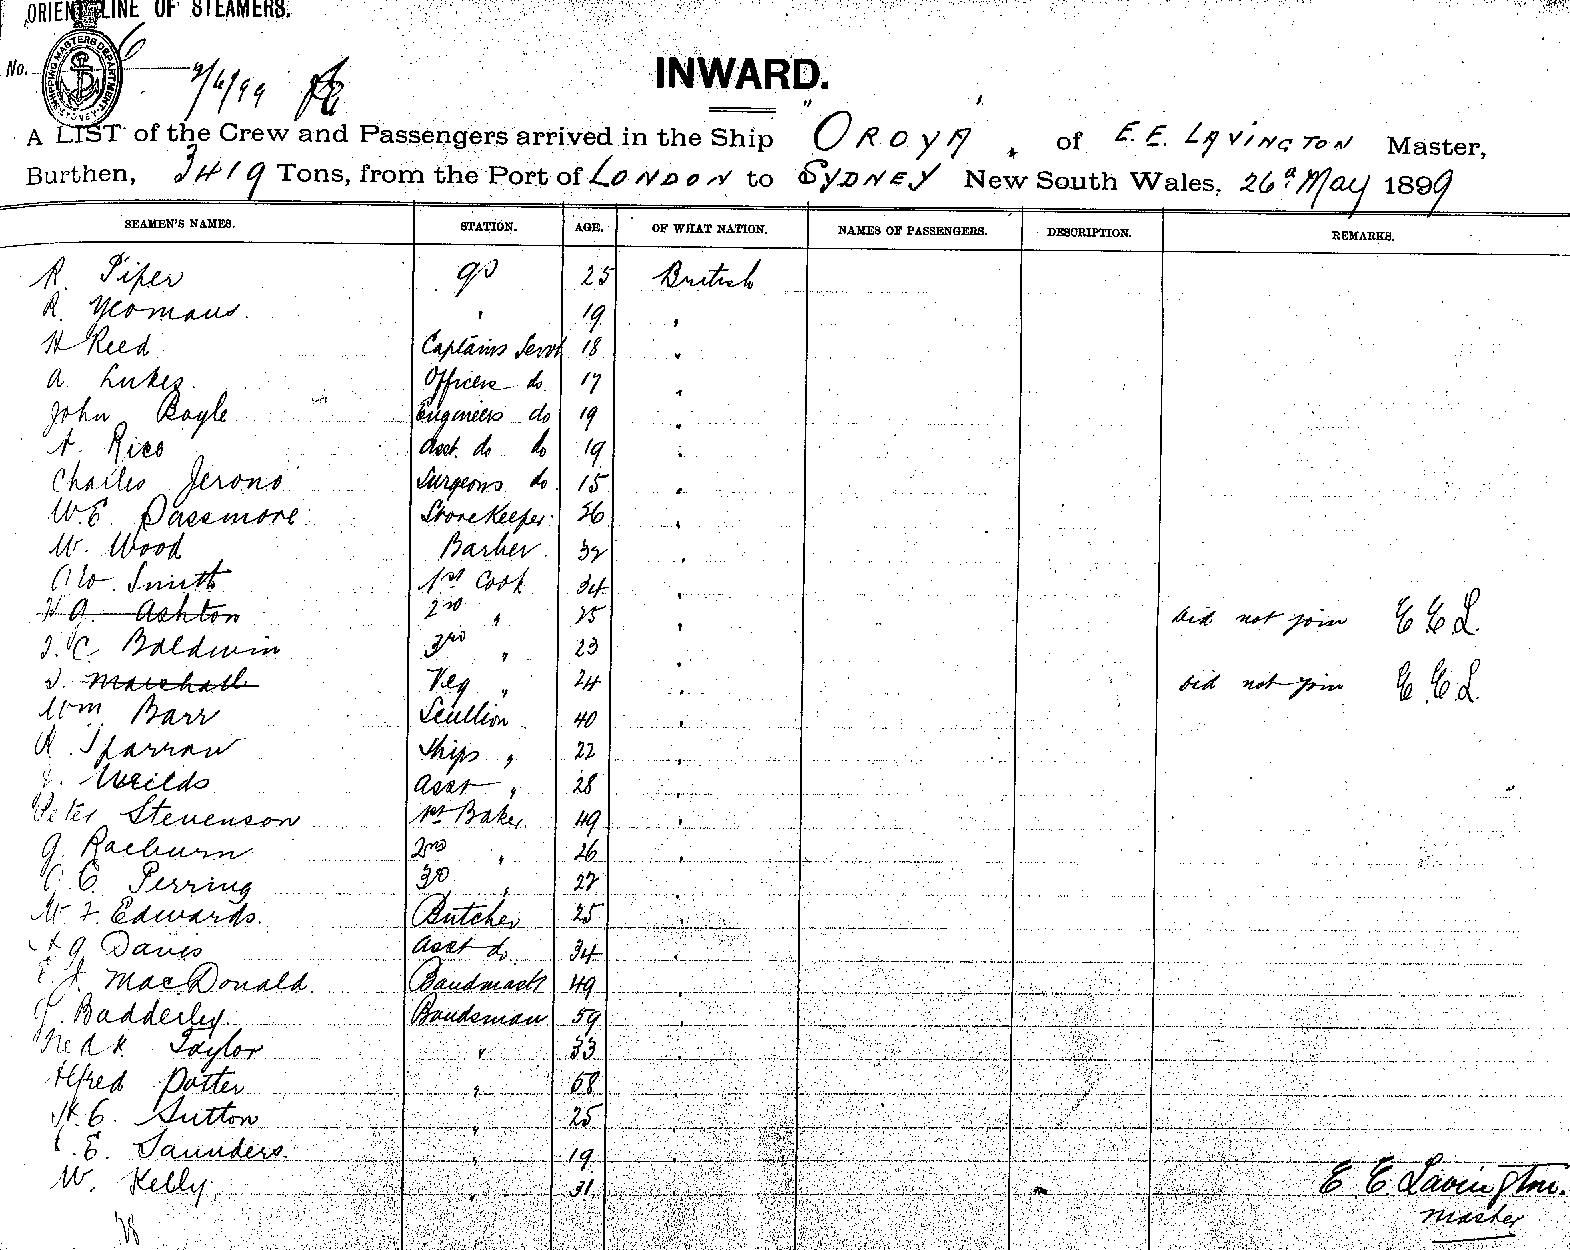 ORIENT LINE OF STEAMERS.
SHIPPING MASTERS DEPARTMENT SYDNEY
No. 6
2/6/99
INWARD.
A LIST of the Crew and Passengers arrived in the Ship "OROYA" of E. E. LAVINGTON Master,
Burthen, 3419 Tons, from the Port of LONDON to SYDNEY New South Wales, 26th May 1899
SEAMEN'S NAMES. STATION. AGE. OF WHAT NATION. NAMES OF PASSENGERS. DESCRIPTION. REMARKS.
R. Piper GS 25 British
R. Yeomans. " 19 "
H Reed Captains Servt 18 "
A. Lukes. Officers do 17 "
John Boyle Engineers do 19 "
A. Rice Asst. do do 19 "
Charles Jerono Surgeons do 15 "
W. E. Passmore Storekeeper 26 "
W. Wood Barber 32 "
A W. Smith 1st Cook 34 "
H G. Ashton 2nd " 25 " Did not join E E L.
J. C. Baldwin 3rd " 23 "
J. Marshall Veg " 24 " Did not join E. E L.
Wm Barr Scullion 40 "
R. Sparrow Ships " 22 "
J. Weilds Asst " 28 "
Peter Stevenson 1st Baker 49 "
G. Raeburn 2nd " 26 "
C. E. Perring 3rd " 22 "
W. F. Edwards. Butcher 25 "
H G Davis Asst do 34 "
MacDonald. Bandmastr 49 "
J. Badderley Bandsman 59 "
Fredk Taylor " 33 "
Alfred Potter " 58 "
H. C. Sutton " 25 "
C. E. Saunders. " 19 "
W. Kelly. " 31
E E Lavington.
Master
28